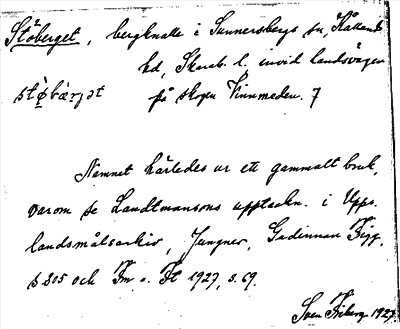 Ståberget, bergknalle i Sunnersbergs sn, Kållands
hd, Skarab. l. invid landsvägen
på skogen Finnmaden. 7
Namnet härledes ur ett gammalt bruk,
varom se Landtmansons uppteckn. i Upps.
landsmålsarkiv, Jungner, Gudinnan Frigg,
s 305 och Fm o. Ft 1927, s. 69.
Sven Friberg 1927.